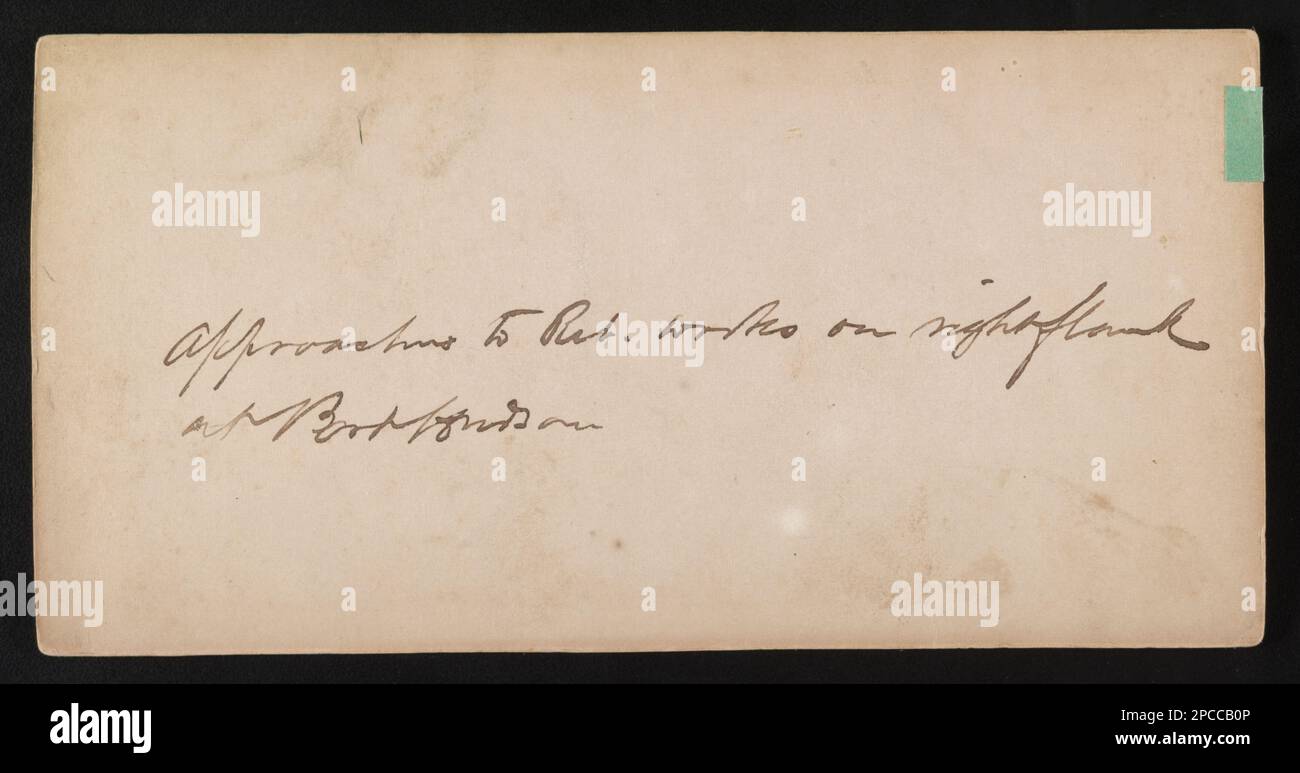 Approaches to Reb. works on right flank
at Port Hudson
alamy
alamy
alamy
alamy
a
alamy
Image ID: 2PCCB0P
www.alamy.com